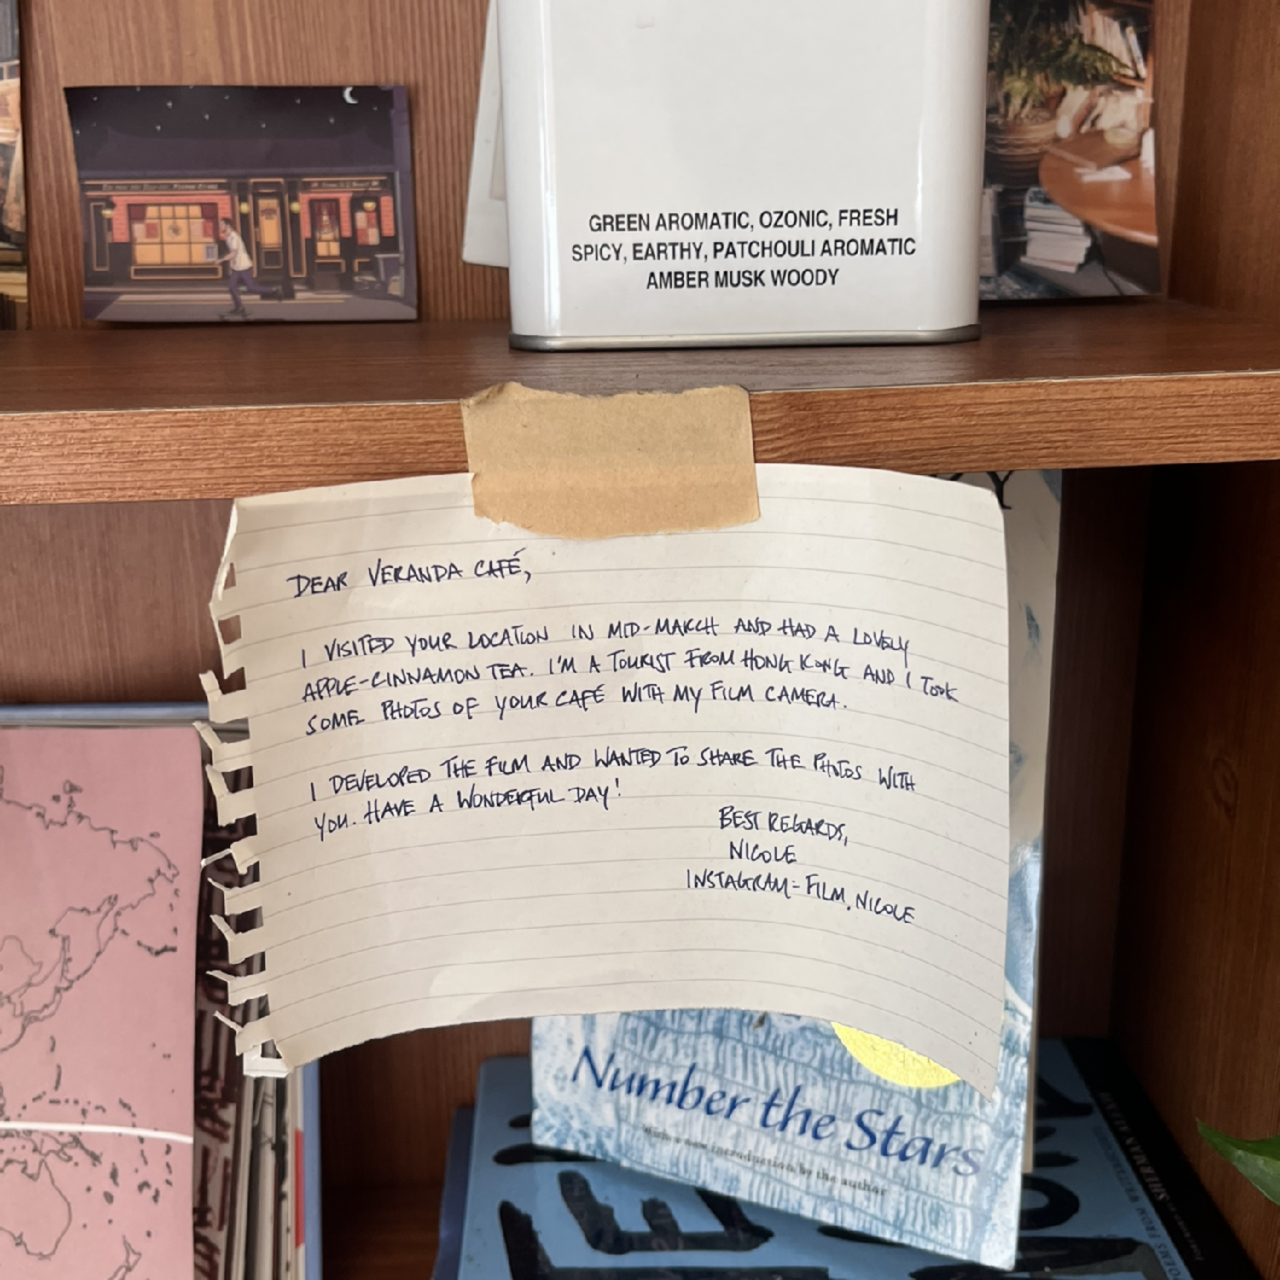 GREEN AROMATIC, OZONIC, FRESH
SPICY, EARTHY, PATCHOULI AROMATIC
AMBER MUSK WOODY
Y
DEAR VERANDA CAFÉ,
I VISITED YOUR LOCATION IN MID-MARCH AND HAD A LOVELY
APPLE-CINNAMON TEA. I'M A TOURIST FROM HONG KONG AND I TOOK
SOME PHOTOS OF YOUR CAFE WITH MY FILM CAMERA.
I DEVELOPED THE FILM AND WANTED TO SHARE THE PHOTOS WITH
YOU. HAVE A WONDERFUL DAY!
BEST REGARDS,
NICOLE
INSTAGRAM = FILM.NICOLE
Number the Stars
With a new introduction by the author
SHERMAN ALEXIE